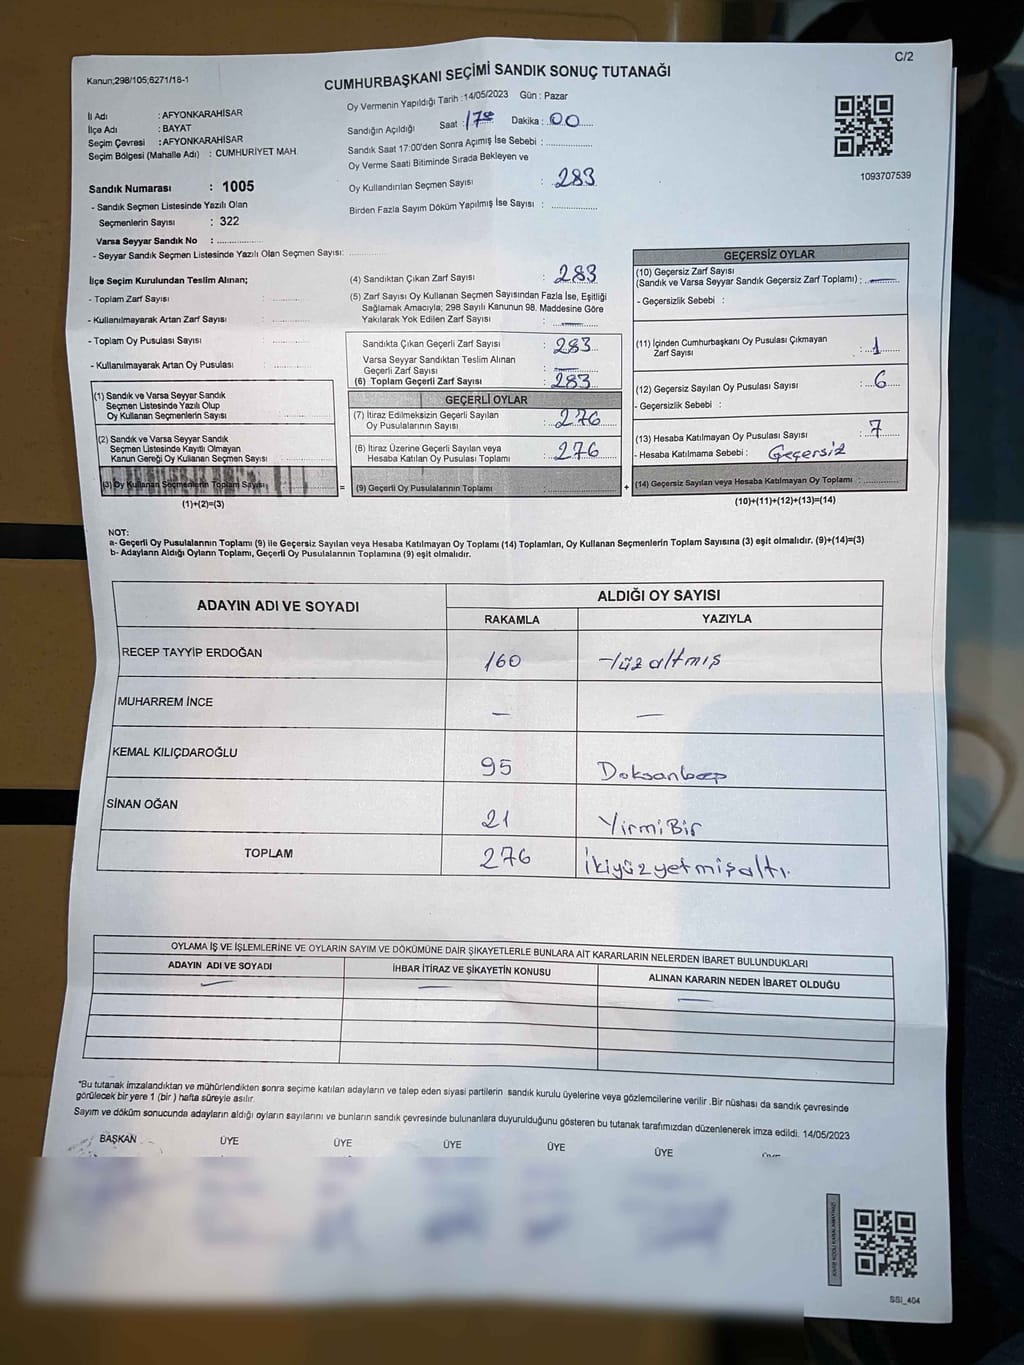 C/2
Kanun;298/105;6271/18-1
CUMHURBAŞKANI SEÇİMİ SANDIK SONUÇ TUTANAĞI
İl Adı : AFYONKARAHİSAR
İlçe Adı : BAYAT
Seçim Çevresi : AFYONKARAHİSAR
Seçim Bölgesi (Mahalle Adı) : CUMHURIYET MAH.
Oy Vermenin Yapıldığı Tarih :14/05/2023 Gün : Pazar
Sandığın Açıldığı Saat : 17 00 Dakika : 00
Sandık Saat 17:00'den Sonra Açımış İse Sebebi :
Oy Verme Saati Bitiminde Sırada Bekleyen ve
Oy Kullandırılan Seçmen Sayısı : 283
Birden Fazla Sayım Döküm Yapılmış İse Sayısı :
1093707539
Sandık Numarası : 1005
- Sandık Seçmen Listesinde Yazılı Olan
Seçmenlerin Sayısı : 322
Varsa Seyyar Sandık No :
- Seyyar Sandık Seçmen Listesinde Yazılı Olan Seçmen Sayısı:
İlçe Seçim Kurulundan Teslim Alınan;
- Toplam Zarf Sayısı :
- Kullanılmayarak Artan Zarf Sayısı :
- Toplam Oy Pusulası Sayısı :
- Kullanılmayarak Artan Oy Pusulası :
(1) Sandık ve Varsa Seyyar Sandık
Seçmen Listesinde Yazılı Olup
Oy Kullanan Seçmenlerin Sayısı :
(2) Sandık ve Varsa Seyyar Sandık
Seçmen Listesinde Kayıtlı Olmayan
Kanun Gereği Oy Kullanan Seçmen Sayısı :
(3) Oy Kullanan Seçmenlerin Toplam Sayısı :
(1)+(2)=(3)
(4) Sandıktan Çıkan Zarf Sayısı : 283
(5) Zarf Sayısı Oy Kullanan Seçmen Sayısından Fazla İse, Eşitliği
Sağlamak Amacıyla; 298 Sayılı Kanunun 98. Maddesine Göre
Yakılarak Yok Edilen Zarf Sayısı : —
Sandıkta Çıkan Geçerli Zarf Sayısı : 283
Varsa Seyyar Sandıktan Teslim Alınan
Geçerli Zarf Sayısı : —
(6) Toplam Geçerli Zarf Sayısı : 283
GEÇERLİ OYLAR
(7) İtiraz Edilmeksizin Geçerli Sayılan
Oy Pusulalarının Sayısı : 276
(8) İtiraz Üzerine Geçerli Sayılan veya
Hesaba Katılan Oy Pusulası Toplamı : 276
= (9) Geçerli Oy Pusulalarının Toplamı : +
GEÇERSİZ OYLAR
(10) Geçersiz Zarf Sayısı
(Sandık ve Varsa Seyyar Sandık Geçersiz Zarf Toplamı) : —
- Geçersizlik Sebebi :
(11) İçinden Cumhurbaşkanı Oy Pusulası Çıkmayan
Zarf Sayısı : 1
(12) Geçersiz Sayılan Oy Pusulası Sayısı : 6
- Geçersizlik Sebebi :
(13) Hesaba Katılmayan Oy Pusulası Sayısı : 7
- Hesaba Katılmama Sebebi : Geçersiz
(14) Geçersiz Sayılan veya Hesaba Katılmayan Oy Toplamı :
(10)+(11)+(12)+(13)=(14)
NOT:
a- Geçerli Oy Pusulalarının Toplamı (9) ile Geçersiz Sayılan veya Hesaba Katılmayan Oy Toplamı (14) Toplamları, Oy Kullanan Seçmenlerin Toplam Sayısına (3) eşit olmalıdır. (9)+(14)=(3)
b- Adayların Aldığı Oyların Toplamı, Geçerli Oy Pusulalarının Toplamına (9) eşit olmalıdır.
ADAYIN ADI VE SOYADI ALDIĞI OY SAYISI
RAKAMLA YAZIYLA
RECEP TAYYİP ERDOĞAN 160 Yüzaltmış
MUHARREM İNCE — —
KEMAL KILIÇDAROĞLU 95 Doksanbeş
SİNAN OĞAN 21 YirmiBir
TOPLAM 276 İkiyüzyetmişaltı.
OYLAMA İŞ VE İŞLEMLERİNE VE OYLARIN SAYIM VE DÖKÜMÜNE DAİR ŞİKAYETLERLE BUNLARA AİT KARARLARIN NELERDEN İBARET BULUNDUKLARI
ADAYIN ADI VE SOYADI İHBAR İTİRAZ VE ŞİKAYETİN KONUSU ALINAN KARARIN NEDEN İBARET OLDUĞU
— — —
*Bu tutanak imzalandıktan ve mühürlendikten sonra seçime katılan adayların ve talep eden siyasi partilerin sandık kurulu üyelerine veya gözlemcilerine verilir .Bir nüshası da sandık çevresinde
görülecek bir yere 1 (bir ) hafta süreyle asılır.
Sayım ve döküm sonucunda adayların aldığı oyların sayılarını ve bunların sandık çevresinde bulunanlara duyurulduğunu gösteren bu tutanak tarafımızdan düzenlenerek imza edildi. 14/05/2023
BAŞKAN ÜYE ÜYE ÜYE ÜYE ÜYE
SSI_404